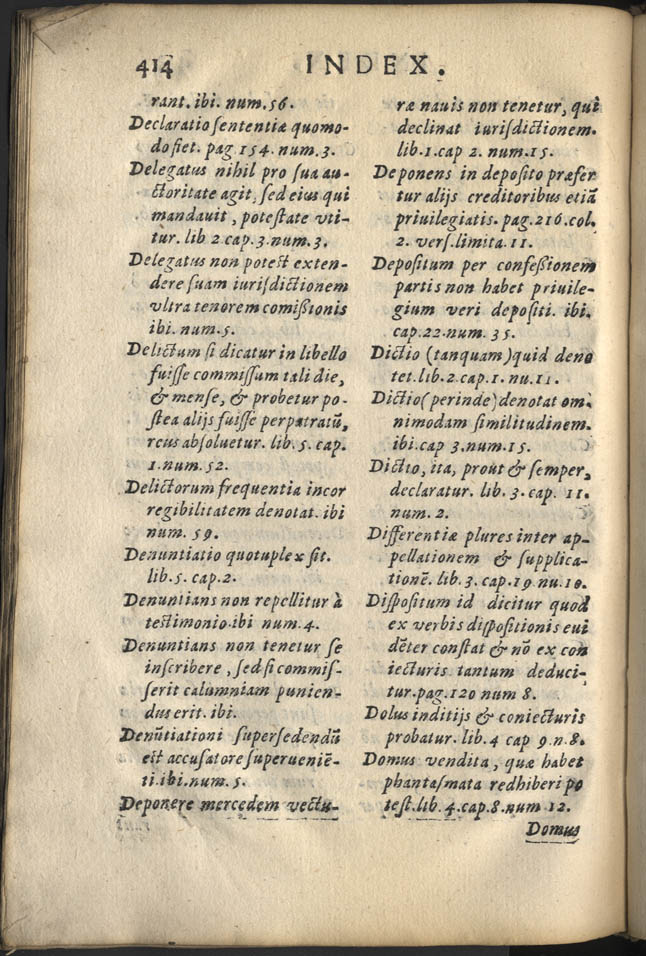 414 INDEX.
rant. ibi. num. 56.
Declaratio sententiæ quomo-
do fiet. pag 154. num. 3.
Delegatus nihil pro sua au-
ctoritate agit, sed eius qui
mandauit, potestate vti-
tur. lib 2 cap. 3. num. 3.
Delegatus non potest exten-
dere suam iurisdictionem
vltra tenorem comißionis
ibi. num. 5.
Delictum si dicatur in libello
fuisse commissum tali die,
& mense, & probetur po-
stea alijs fuisse perpetratū,
reus absoluetur. lib. 5. cap.
1. num. 52.
Delictorum frequentia incor
regibilitatem denotat. ibi
num. 59.
Denuntiatio quotuplex sit.
lib. 5. cap. 2.
Denuntians non repellitur à
testimonio. ibi num. 4.
Denuntians non tenetur se
inscribere, sed si commis-
serit calumniam punien-
dus erit. ibi.
Denūtiationi supersedendū
est accusatore superueniē-
ti. ibi. num. 5.
Deponere mercedem vectu-
ræ nauis non tenetur, qui
declinat iurisdictionem.
lib. 1. cap 2. num. 15.
Deponens in deposito præfer
tur alijs creditoribus etiā
priuilegiatis. pag. 216. col.
2. vers. limita. 11.
Depositum per confeßionem
partis non habet priuile-
gium veri depositi. ibi.
cap. 22. num. 35.
Dictio (tanquam) quid deno
tet. lib. 2. cap. 1. nu. 11.
Dictio (perinde) denotat om-
nimodam similitudinem.
ibi. cap 3. num. 15.
Dictio, ita, prout & semper,
declaratur. lib. 3. cap. 11.
num. 2.
Differentiæ plures inter ap-
pellationem & supplica-
tionē. lib. 3. cap. 19 nu. 10.
Dispositum id dicitur quod
ex verbis dispositionis eui
dēter constat & nō ex con
iecturis tantum deduci-
tur. pag. 120 num 8.
Dolus inditijs & coniecturis
probatur. lib. 4 cap 9. n. 8.
Domus vendita, quæ habet
phantasmata redhiberi po
test. lib. 4. cap. 8. num 12.
Domus